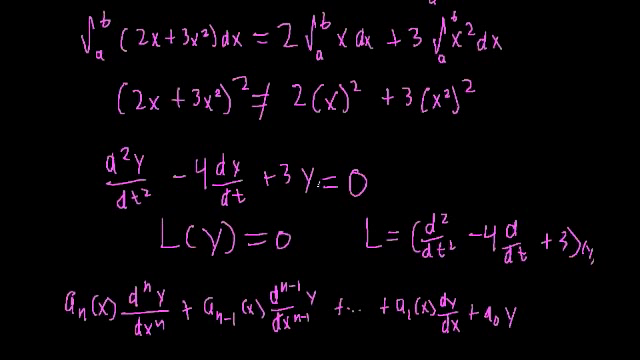 ∫ₐᵇ (2x+3x²)dx = 2∫ₐᵇ x dx + 3∫ₐᵇ x² dx
(2x + 3x²)² ≠ 2(x)² + 3(x²)²
d²y/dt² - 4 dx/dt + 3y = 0
L(y) = 0 L = (d²/dt² - 4 d/dt + 3)(y)
aₙ(x) dⁿy/dxⁿ + aₙ₋₁(x) dⁿ⁻¹y/dxⁿ⁻¹ + ... + a₁(x) dy/dx + a₀ y